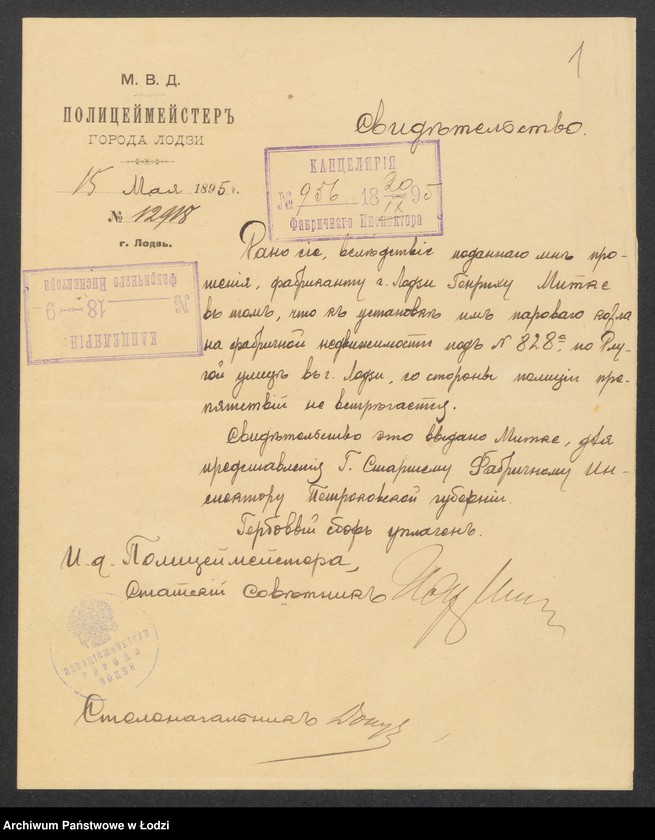 1
М. В. Д.
ПОЛИЦЕЙМЕЙСТЕРЪ
ГОРОДА ЛОДЗИ
15 Мая 1895 г.
№ 12918
г. Лодзь.
Свидѣтельство.
КАНЦЕЛЯРІЯ
№ 956 18 20/IX 95
Фабричного Инспектора
КАНЦЕЛЯРІЯ
№ 18 — 9
Фабричнаго Инспектора
Дано сіе, вслѣдствіе поданнаго мнѣ про-
шенія, фабриканту г. Лодзи Генриху Митке
въ томъ, что къ установкѣ имъ пароваго котла
на фабричной недвижимости подъ № 828а по Длу-
гой улицѣ въ г. Лодзи, со стороны полиціи пре-
пятствій не встрѣчается.
Свидѣтельство это выдано Митке, для
представленія Г. Старшему Фабричному Ин-
спектору Петроковской губерніи.
Гербовый сборъ уплаченъ.
И. д. Полицеймейстера,
Статскій совѣтникъ
ПОЛИЦІЙМЕЙСТЕРЪ
ГОРОДА
ЛОДЗИ
Столоначальникъ
Archiwum Państwowe w Łodzi